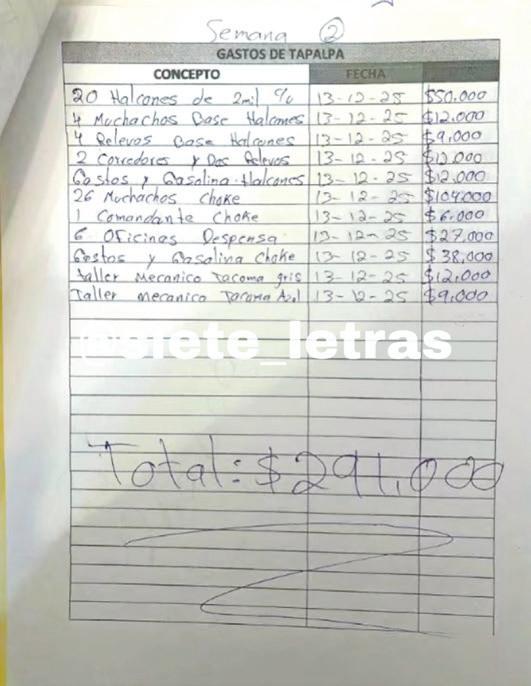 Semana 2
GASTOS DE TAPALPA
CONCEPTO FECHA
20 Halcones de 2mil % 13-12-25 $50.000
4 Muchachos Base Halcones 13-12-25 $12.000
4 Relevos Base Halcones 13-12-25 $9,000
2 Corredores y Dos Relevos 13-12-25 $12.000
Gastos y Gasolina Halcones 13-12-25 $12.000
26 Muchachos Choke 13-12-25 $104.000
1 Comandante Choke 13-12-25 $6.000
6 Oficinas Despensa 13-12-25 $27,000
Gastos y Gasolina Choke 13-12-25 $38,000
Taller Mecanico Tacoma gris 13-12-25 $12,000
Taller mecanico Tacoma Azul 13-12-25 $9,000
@siete_letras
Total: $291,000